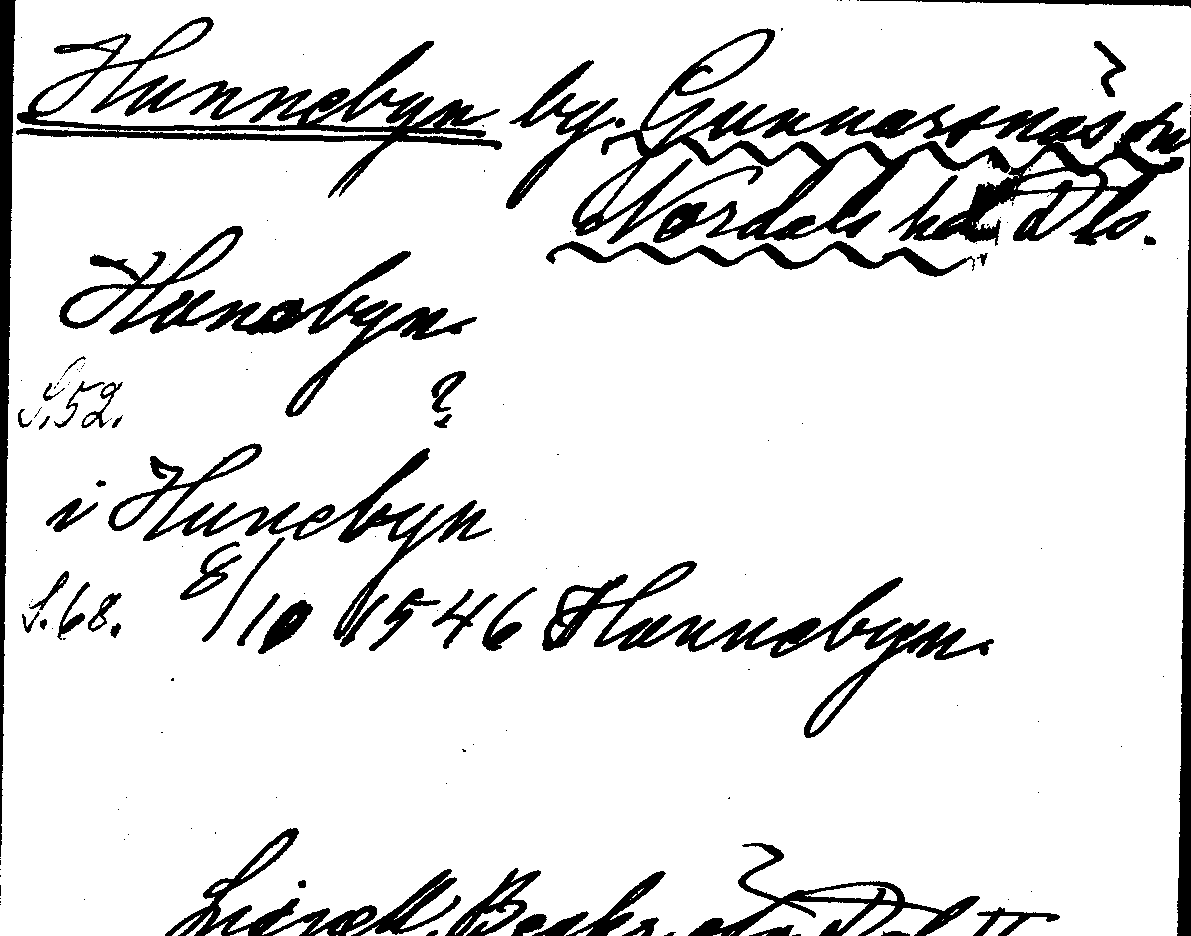 Hunnebyn by. Gunnarsnäs sn
Nordals hd Dls.
Hunebyn.
S.52. ?
i Hunebyn
S.68. 8/10 1546 Hunnebyn.
Lignell, Beskr. ofv. Dal II